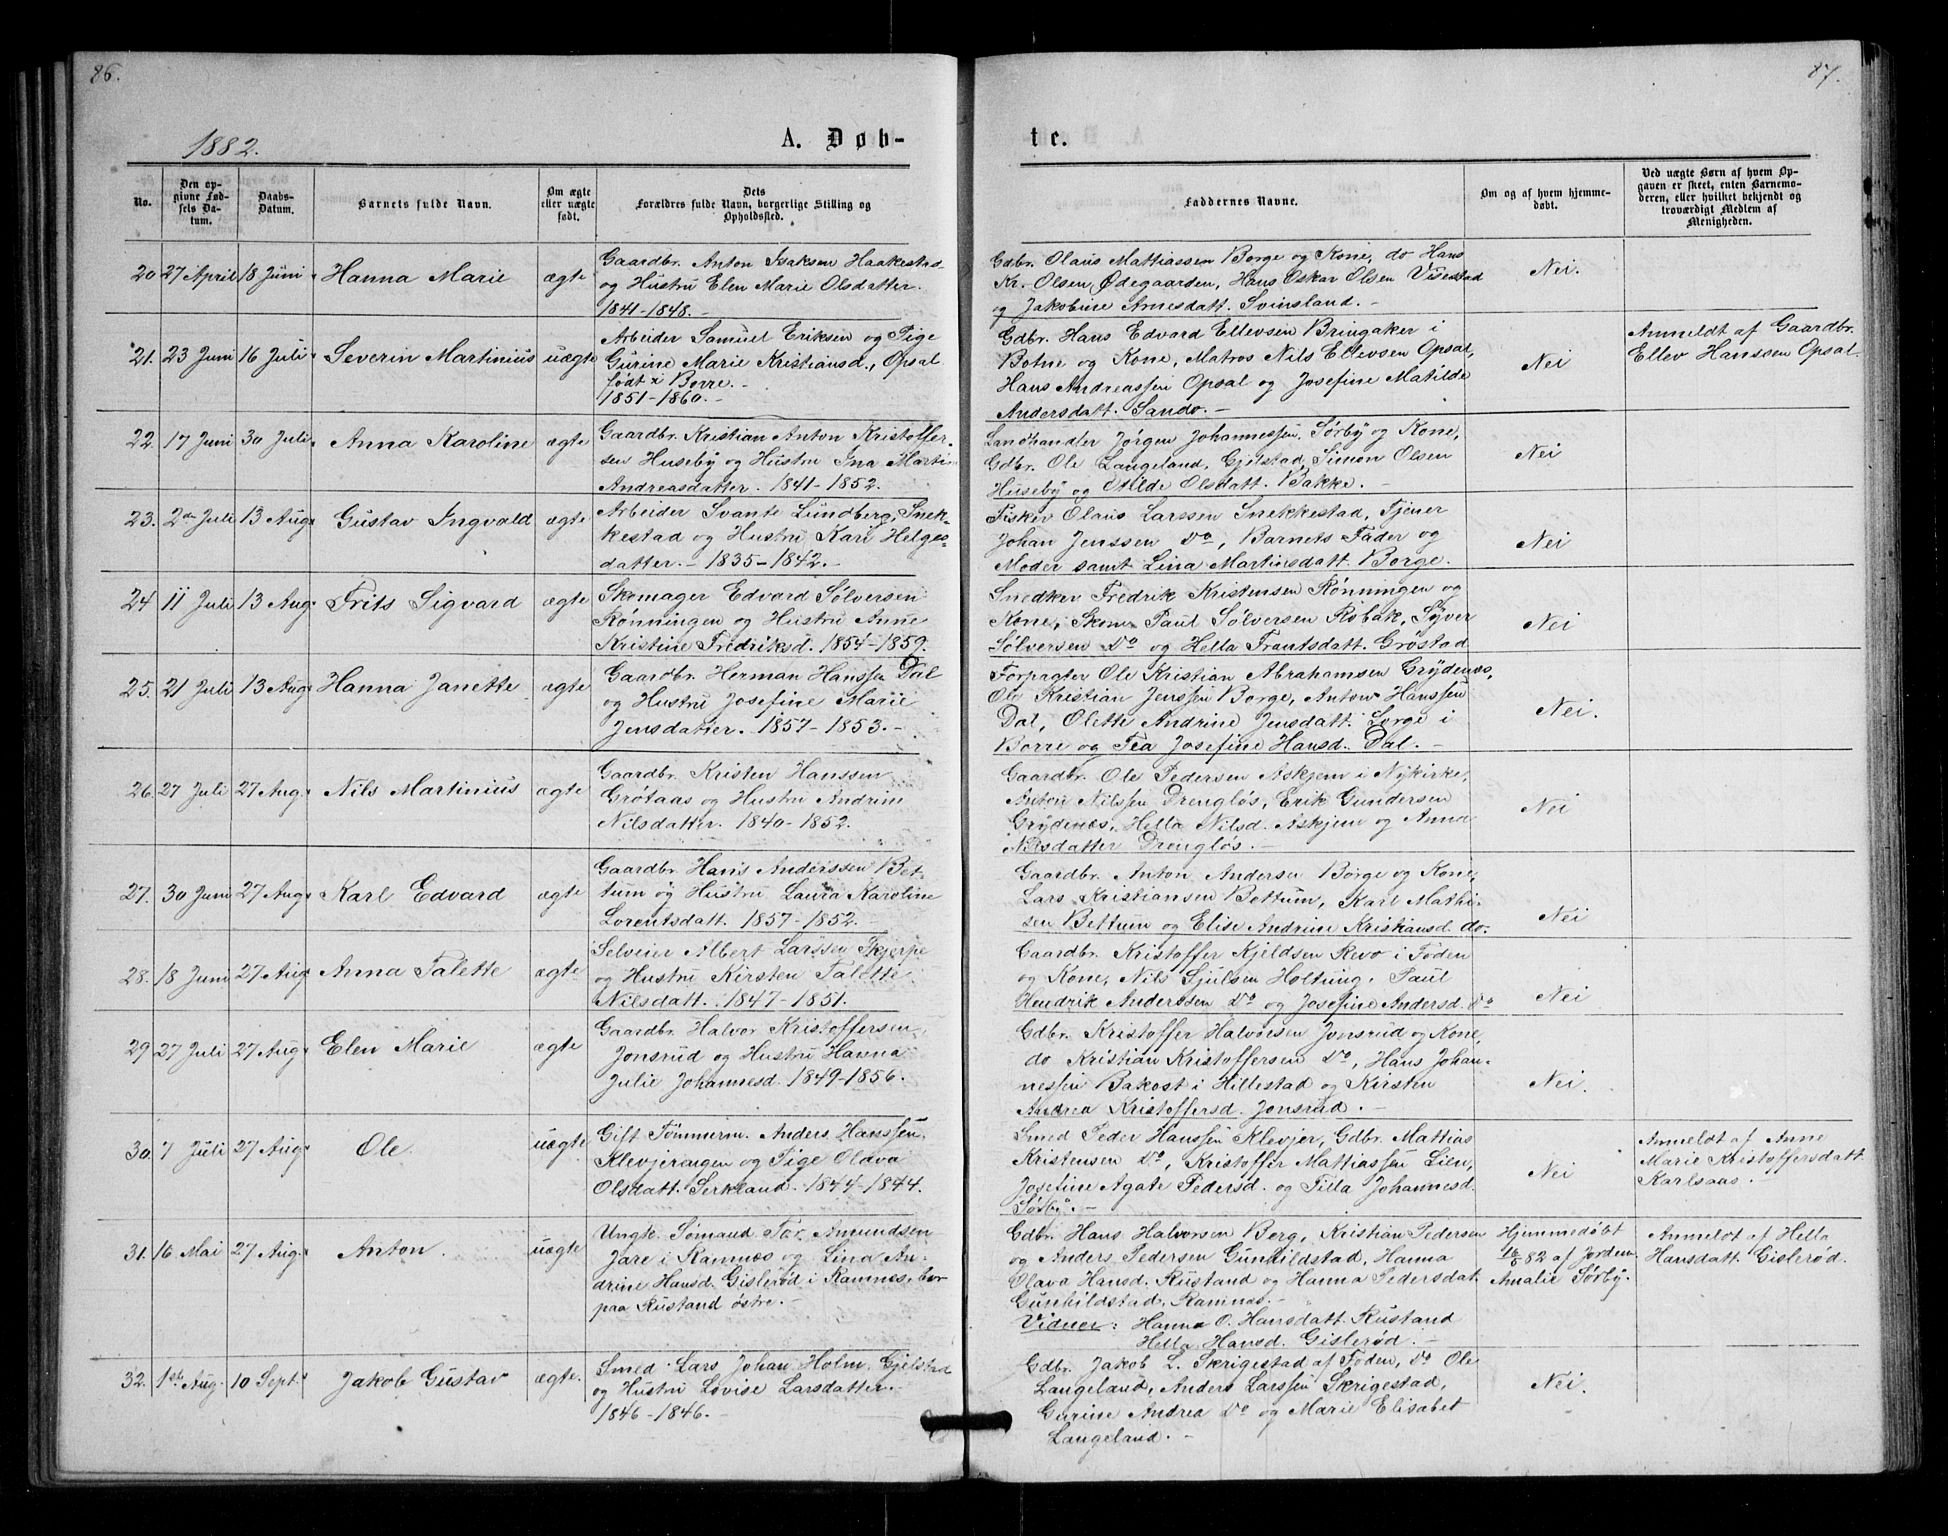 86.
1882.
A. Døb-
No.
Den op-
givne Fød-
sels Da-
tum.
Daabs-
Datum.
Barnets fulde Navn.
Om ægte
eller uægte
født.
Dets
Forældres fulde Navn, borgerlige Stilling og
Opholdssted.
20 27 April 18 Juni Hanna Marie ægte
Gaardbr. Anton Isaksen Haakestad
og Hustru Elen Marie Olsdatter.
1841-1848.-
21. 23 Juni 16 Juli Severin Martinius uægte
Arbeider Samuel Eriksen og Pige
Gurine Marie Kristiansd., Opsal
født i Borre.-
1851-1860.-
22. 17 Juni 30 Juli Anna Karoline ægte
Gaardbr. Kristian Anton Kristoffer-
sen Huseby og Hustru Ina Martin
Andreasdatter. 1841-1852.
23. 2den Juli 13 Aug. Gustav Ingvald ægte
Arbeider Svante Lundberg, Snek-
kestad og Hustru Kari Helges-
datter.- 1835-1842.-
24 11 Juli 13 Aug. Frits Sigvard ægte
Skomager Edvard Sølversen
Rønningen og Hustru Anne
Kristine Fredriksd. 1854-1859.
25. 21 Juli 13 Aug. Hanna Janette ægte
Gaardbr. Herman Hanssen Dal
og Hustru Josefine Marie
Jensdatter. 1857-1853.-
26. 27 Juli 27 Aug. Nils Martinius ægte
Gaardbr. Kristen Hanssen
Grøtaas og Hustru Andrine
Nilsdatter. 1840-1852.
27. 30 Juni 27 Aug. Karl Edvard ægte
Gaardbr. Hans Anderssen Bet-
tum og Hustru Laura Karoline
Lorentsdatt. 1857-1852.
28. 18 Juni 27 Aug. Anna Talette ægte
Selveier Albert Larssen Skjerpe
og Hustru Kirsten Talette
Nilsdatt. 1847-1851.
29 27 Juli 27 Aug. Elen Marie ægte
Gaardbr. Halvor Kristoffersen
Jonsrud og Hustru Hanna
Julie Johannesd. 1849-1856.
30. 7 Juli 27 Aug. Ole. uægte
Gift Tømmerm. Anders Hanssen
Klevjerengen og Pige Olava
Olsdatt. Serkland. 1844-1844.
31. 16 Mai 27 Aug. Anton. uægte
Ungk. Sømand Tor Amundsen
Jare i Ramnæs og Lina An-
drine Hansd. Gislerød i Ramnes, bor
paa Rustand østre.-
32. 1ste Aug. 10 Sept. Jakob Gustav ægte.
Smed Lars Johan Holm, Gjelstad
og Hustru Lovise Larsdatter.-
1846-1846.-
87.
te.
Faddernes Navne.
Om og af hvem hjemme-
døbt.
Ved uægte Børn af hvem Op-
gaven er skeet, enten Barnemo-
deren, eller hvilket bekjendt og
troværdigt Medlem af
Menigheden.
Gdbr. Olaus Mattiassen Borge og Kone, do Hans
Kr. Olsen Ødegaarden, Hans Oskar Olsen Vivestad
og Jakobine Arnesdatt. Svinsland.-
Nei.
Gdbr. Hans Edvard Ellevsen Bringaker i
Botne og Kone, Matros Nils Ellevsen Opsal,
Hans Andreassen Opsal og Josefine Matilde
Andersdatt. Sando.-
Nei
Anmeldt af Gaardbr.
Ellev Hanssen Opsal.
Landhandler Jørgen Johannessen, Sørby og Kone,
Gdbr. Ole Langeland, Gjelstad, Simon Olsen
Huseby og Milde Olsdatt. Bakke.-
Nei
Fisker Olaus Larssen Snekkestad, Tjener
Johan Jenssen Do, Barnets Fader og
Moder samt Lina Martinsdatt. Borge.
Nei
Snedker Fredrik Kristensen Rønningen og
Kone, Skom. Paul Sølversen Robak, Syver
Sølversen Do og Hella Frantsdatt. Grøstad
Nei
Forpagter Ole Kristian Abrahamsen Grydenæs,
Ole Kristian Jenssen Borge, Anton Hanssen
Dal, Olette Andrine Jensdatt. Lorge i
Borre og Tea Josefine Hansd. Dal.-
Nei.
Gaardbr. Ole Pedersen Askjem i Nykirke,
Anton Nilssen Drengløs, Erik Gundersen
Grydenæs, Hella Nilsd. Askjem og Anna
Nilsdatter Drengløs.-
Nei
Gaardbr. Anton Andersen Borge og Kone,
Lars Kristiansen Bettum, Karl Mathi-
sen Bettum og Elise Andrine Kristiansd. do.
Nei
Gaardbr. Kristoffer Kjeldsen Revo i Foden
og Kone, Nils Sjulsen Holtung, Paul
Hendrik Anderssen Do og Josefine Andersd. Do
Nei
Gdbr. Kristoffer Halvorsen Jonsrud og Kone,
do Kristian Kristoffersen Do, Hans Johan-
nessen Bakost i Hillestad og Kirsten
Andrea Kristoffersd. Jonsrud.-
Nei.
Smed Peder Hanssen Klevjer, Gdbr. Mattias
Kristensen Do, Kristoffer Mattiassen Lien,
Josefine Agate Pedersd. og Tilla Johannesd.
Sørby.-
Nei
Anmeldt af Anne
Marie Kristoffersdatt.
Karlsaas.
Gdbr. Hans Halvorsen Berg, Kristian Pedersen
og Anders Pedersen Gunhildstad, Hanna
Olava Hansd. Rustand og Hanna Pedersdat.
Gunhildstad, Ramnæs.-
Vidner: Hanna O. Hansdatt. Rustand
Hella Hansd. Gislerød.-
Hjemmedøbt
16/5 82 af Jordm.
Amalie Sørby.
Anmeldt af Hella
Hansdatt. Gislerød.
Gdbr. Jakob L. Skrigestad af Foden, Do Ole
Langeland, Anders Larssen Skrigestad,
Gurine Andrea Do og Marie Elisabet
Langeland.-
Nei.